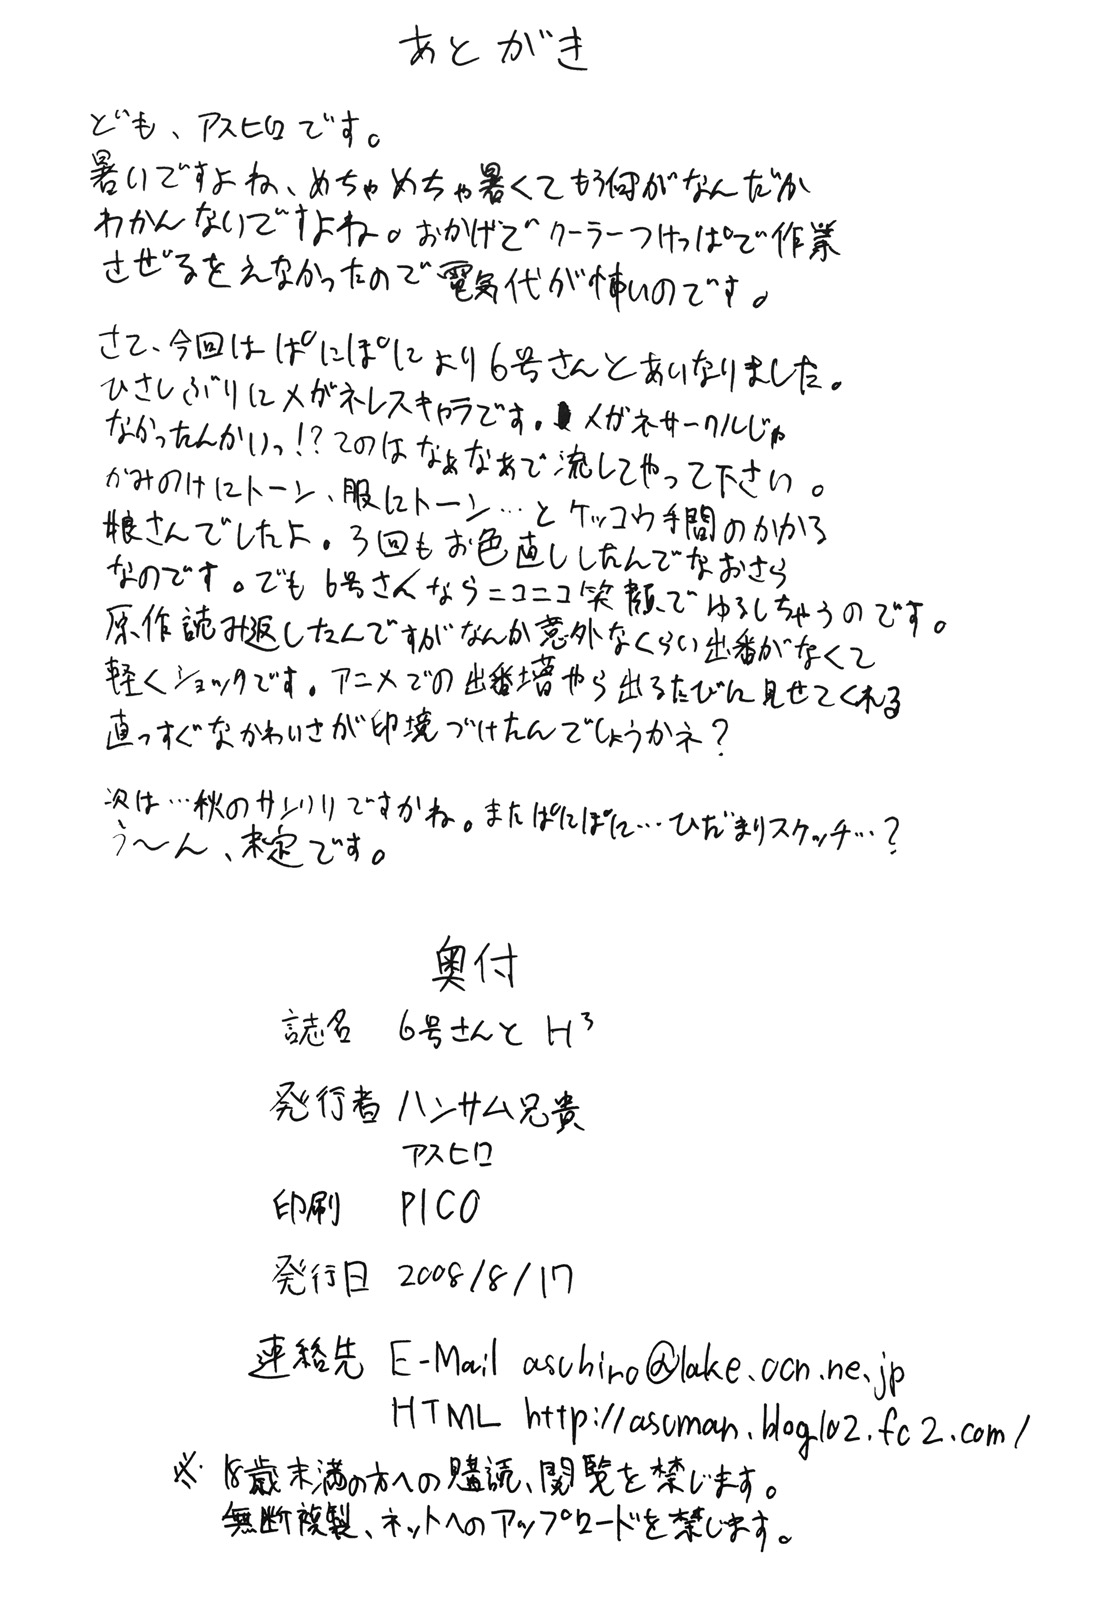 あとがき
ども、アスヒロです。
暑いですよね、めちゃめちゃ暑くてもう何がなんだか
わかんないですよね。おかげでクーラーつけっぱで作業
させ゛るをえなかったので電気代が怖いのです。
さて、今回はぱにぽにより6号さんとあいなりました。
ひさしぶりにメガネレスキャラです。メガネサークルじゃ
なかったんかいっ!?てのはなぁなぁで流してやって下さい。
かみのけにトーン、服にトーン…とケッコウ手間のかかる
娘さんでしたよ。3回もお色直ししたんでなおさら
なのです。でも6号さんならニコニコ笑顔でゆるしちゃうのです。
原作読み返したんですがなんか意外なくらい出番がなくて
軽くショックです。アニメでの出番増やら出るたびに見せてくれる
直っすぐなかわいさが印境づけたんでしょうかネ?
次は…秋のサンクリですかね。またぱにぽに…ひだまりスケッチ…?
う〜ん、未定です。
奥付
誌名 6号さんとH³
発行者 ハンサム兄貴
アスヒロ
印刷 PICO
発行日 2008/8/17
連絡先 E-Mail asuhiro@lake.ocn.ne.jp
HTML http://asuman.blog102.fc2.com/
※ 18歳未満の方への購読、閲覧を禁じます。
無断複製、ネットへのアップロードを禁じます。